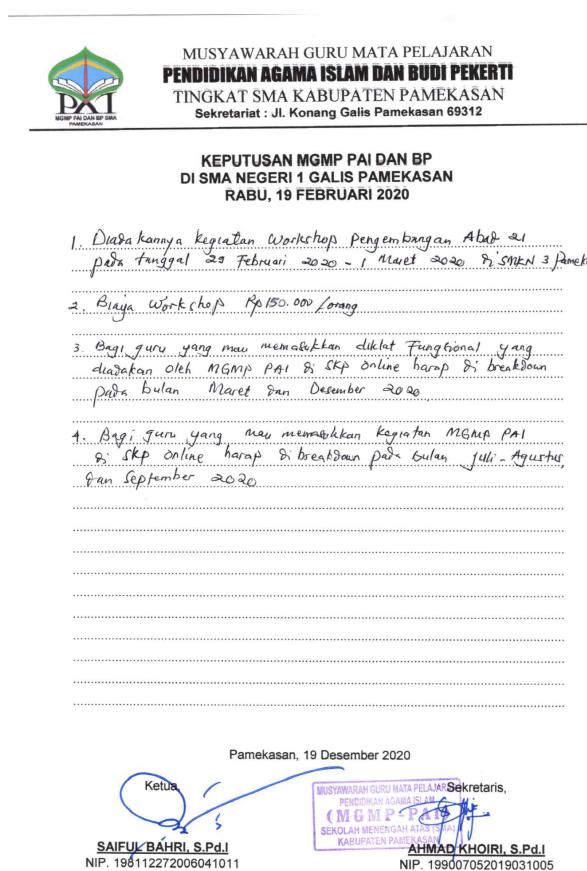 MUSYAWARAH GURU MATA PELAJARAN
PENDIDIKAN AGAMA ISLAM DAN BUDI PEKERTI
TINGKAT SMA KABUPATEN PAMEKASAN
Sekretariat : Jl. Konang Galis Pamekasan 69312
PAI
MGMP PAI DAN BP SMA
PAMEKASAN
KEPUTUSAN MGMP PAI DAN BP
DI SMA NEGERI 1 GALIS PAMEKASAN
RABU, 19 FEBRUARI 2020
1. Diadakannya kegiatan Workshop Pengembangan Abad 21
pada tanggal 29 Februari 2020 - 1 Maret 2020 di SMKN 3 Pamek
2. Biaya Workshop Rp 150.000 /orang
3. Bagi guru yang mau memasukkan diklat Fungsional yang
diadakan oleh MGMP PAI di SKP online harap di breakdown
pada bulan Maret dan Desember 2020
4. Bagi guru yang mau memasukkan kegiatan MGMP PAI
di SKP online harap di breakdown pada bulan Juli - Agustus,
dan September 2020
Pamekasan, 19 Desember 2020
Ketua,
Sekretaris,
MUSYAWARAH GURU MATA PELAJAR
PENDIDIKAN AGAMA ISLAM
(MGMP-PAI)
SEKOLAH MENENGAH ATAS (SMA)
KABUPATEN PAMEKASAN
SAIFUL BAHRI, S.Pd.I
NIP. 198112272006041011
AHMAD KHOIRI, S.Pd.I
NIP. 199007052019031005